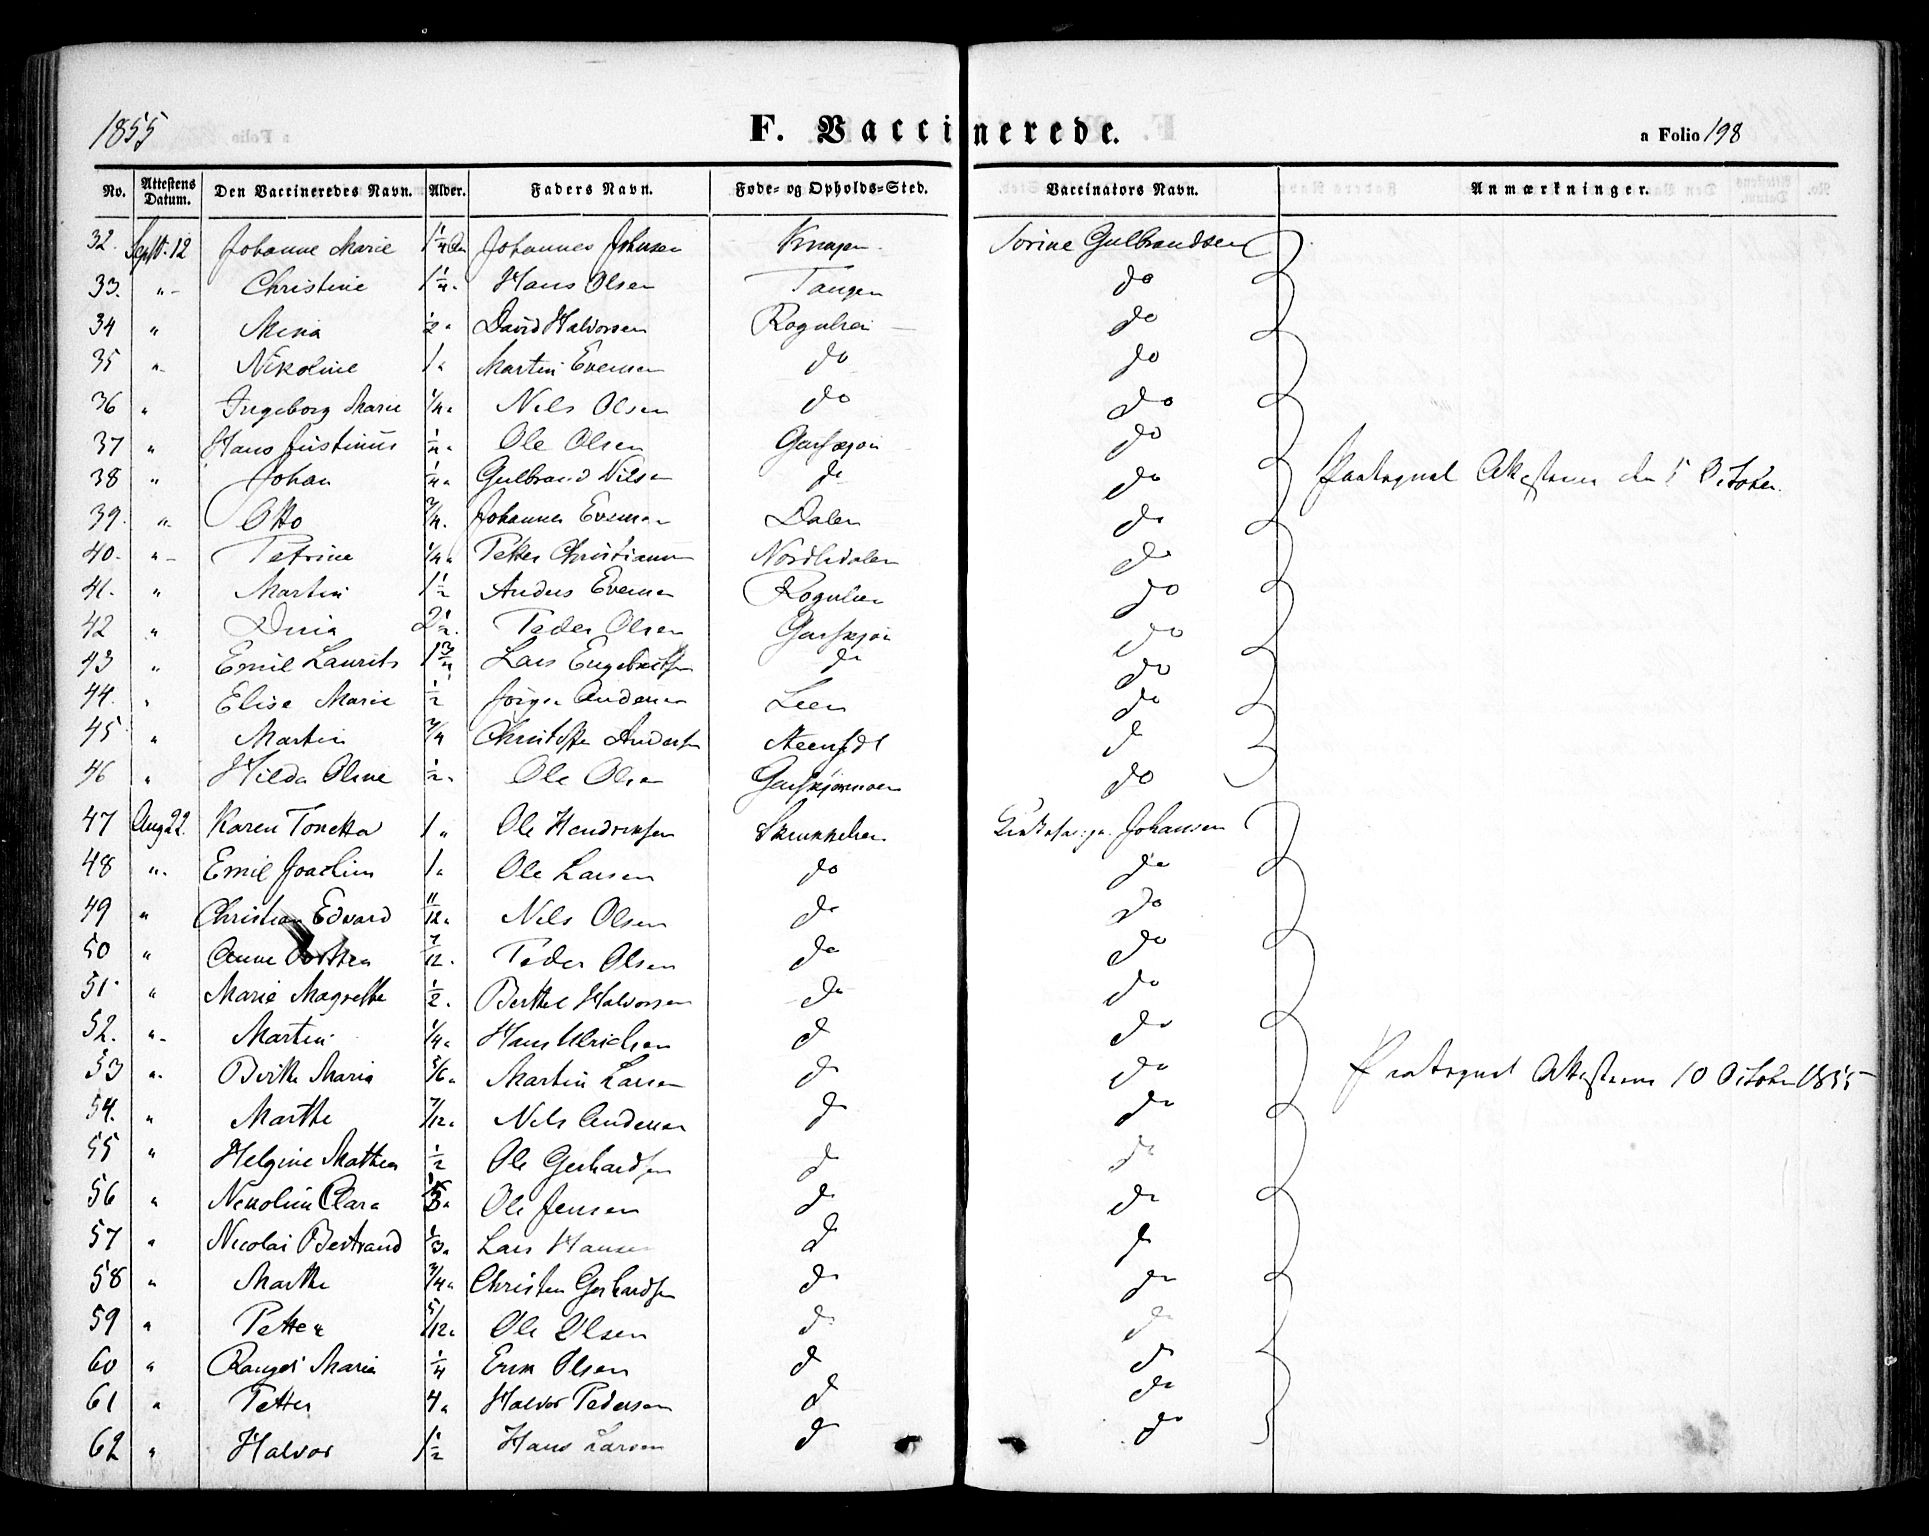 1855 F. Vaccinerede. a Folio 198
No. Attestens Datum. Den Vaccineredes Navn. Alder. Faders Navn. Føde- og Opholds-Sted. Vaccinators Navn. Anmærkninger.
32. Septb. 12 Johanne Marie 1 1/4 Johannes Johnsen Sorine Gulbrandsen
33. " Christine 1 1/4 Hans Olsen Tangen do
34 " Mina 1/2 " David Halvorsen do
35 " Nikoline 1 " Martin Evensen do do
36 " Ingeborg Marie 1/4 " Nils Olsen do do
37 " Hans Justinus 1/4 " Ole Olsen do
38 " Johan 1/4 " Gulbrand Nilsen do do Attesterne den 5 October.
39. " Otto 3/4 " Johannes Evensen Dalen do
40. " Petrine 1/4 " Petter Christiansen Nordlidalen do
41. " Martin 1 1/2 Anders Evensen do
42 " Dina 2 1/2 Peder Olsen do
43 " Emil Laurits 1 3/4 Lars Engebretsen do do
44. " Elise Marie 1/2 Jörgen Andersen Leer do
45 " Martin 3/4 Christoffer Andersen do
46 " Hilda Oline 1/2 " Ole Olsen do
47 Aug 22. Karen Tonetta 1 " Ole Hendriksen Skrukkelien Johansen
48 " Emil Joachim 1 " Ole Larsen do do
49 " Christian Edvard 11/12 " Nils Olsen do do
50 " Anne Dorthea 7/12 " Peder Olsen do do
51 " Marie Magrethe 1/2 " Berthel Halvorsen do do
52. " Martin 1/4 " Hans Ulrichsen do do
53 " Berthe Maria 5/6 " Martin Larsen do do Attesterne 10 October 1855
54. " Marthe 7/12 " Nils Andersen do do
55 " Helgine Mathea 1/2 Ole Gerhardsen do do
56 " Nikoline Clara Ole Jensen do do
57 " Nicolai Bertrand 1/3 " Lars Hansen do do
58 " Marthe 3/4 " Christen Gerhardsen do do
59 " Petter 5/12 " Ole Olsen do do
60 " Rangdi Maria 1/4 Erik Olsen do do
61 " Petter 4 " Halvor Pedersen do do
62 " Halvor 1 1/2 Hans Larsen do do